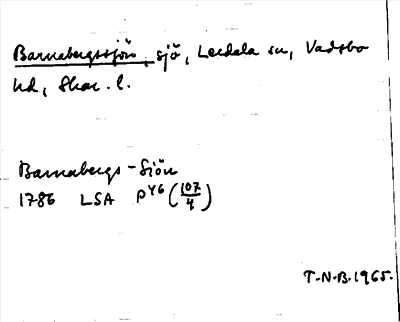 Barnabergssjön, sjö, Lerdala sn, Vadsbo
hd, Skar. l.
Barnabergs-Siön
1786 LSA P46 (107/4)
T-N-B. 1965.